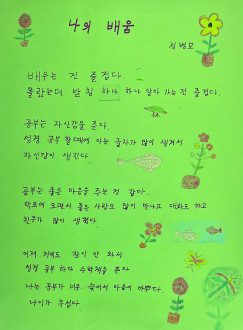 나의 배움
배우는 건 즐겁다.
몰랐는데 받침 하나 하나 알아 가는 건 즐겁다.
공부는 자신감을 준다.
성경 공부 할 때에 아는 글자가 많이 생겨서
자신감이 생긴다.
공부는 좋은 마음을 주는 것 같다.
학교에 오면서 좋은 사람도 많이 만나고 대화도 하고
친구가 많이 생겼다.
어저 저녁도 잠이 안 와서
성경 공부 하다 수학책을 폈다
나는 공부가 너무 늦어서 마음이 바쁘다.
나이가 무섭다.